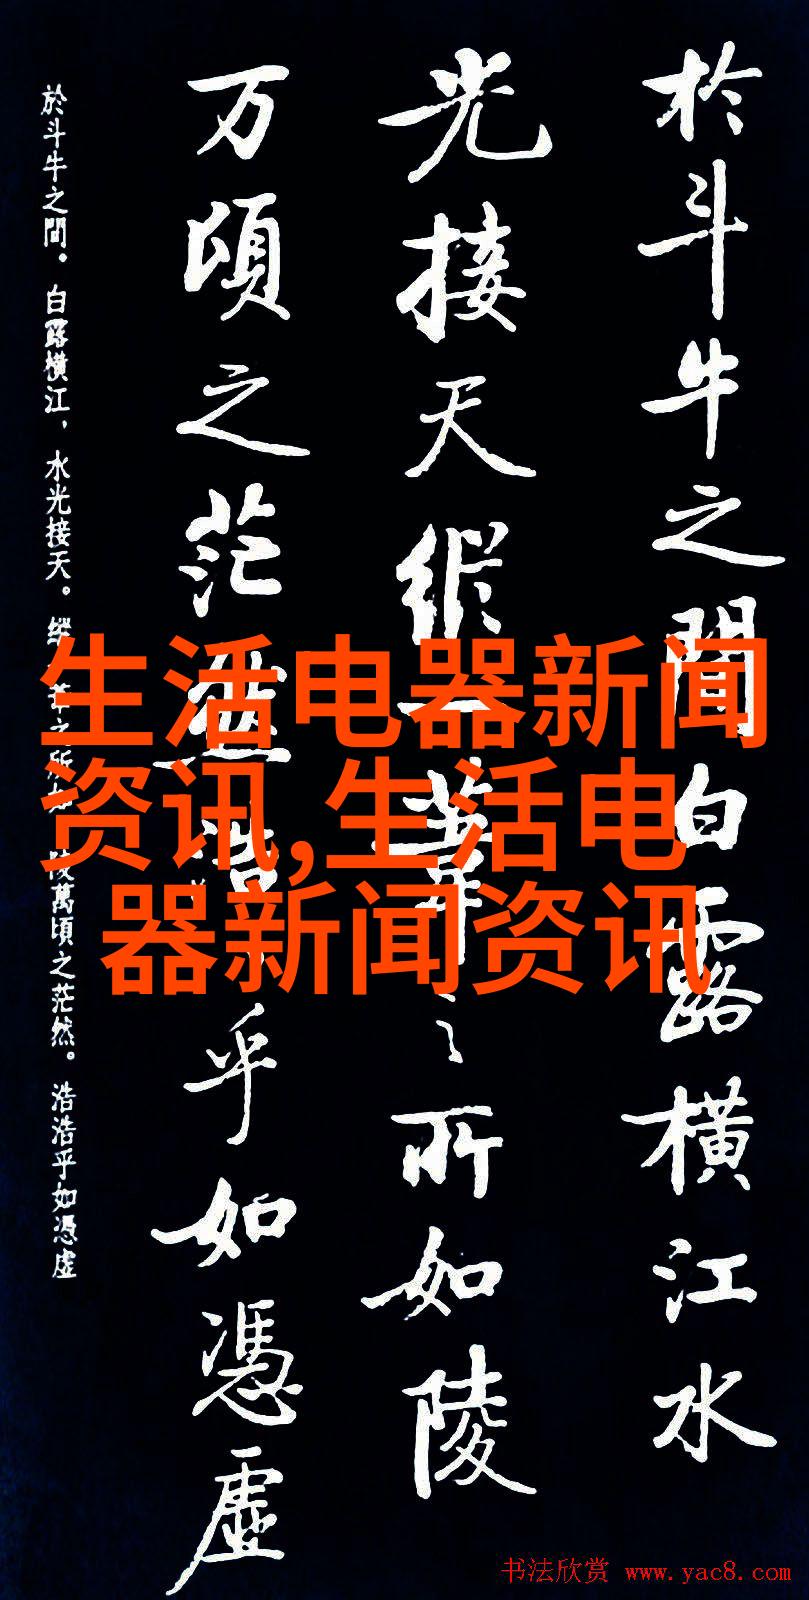 於斗牛之間白露横江水
光接天縱一葦之所如陵
万頃之茫然浩浩乎如馮虛
於斗牛之間。白露横江，水光接天。纵一苇之所如，陵萬頃之茫然。浩浩乎如馮虛
生活电器新闻
资讯,生活电
器新闻资讯
书法欣赏 www.yac8.com